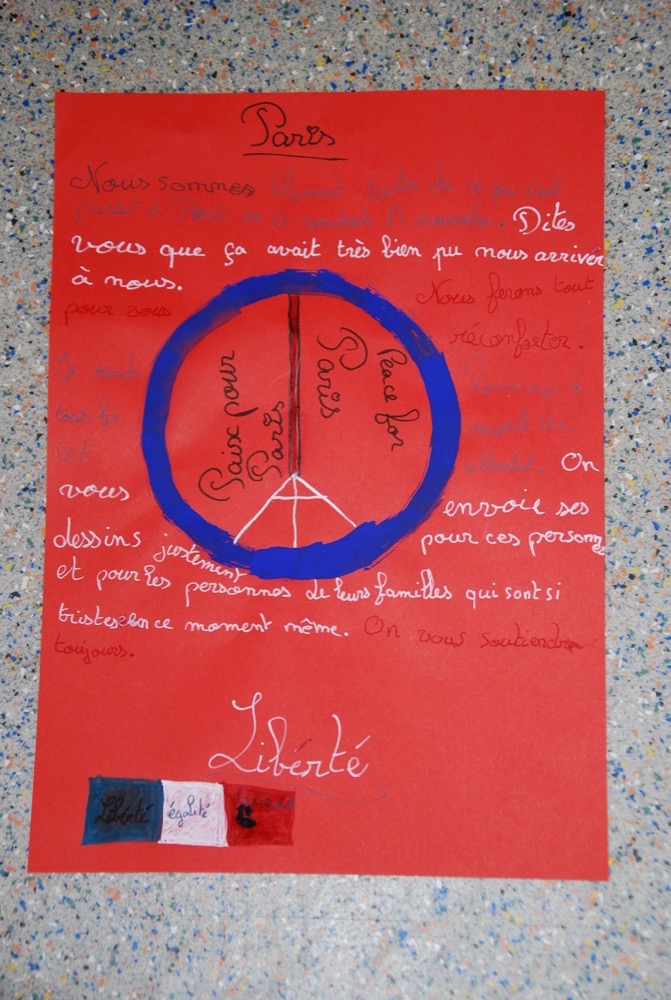 Paris
Nous sommes tellement tristes de ce qui s'est
passé à Paris ce vendredi 13 novembre. Dites
vous que ça avait très bien pu nous arriver
à nous. Nous ferons tout
pour vous réconforter.
Je rends Hommage à
tous les
cet attentat. On
vous envoie ses
dessins justement pour ces personnes
et pour les personnes de leurs familles qui sont si
tristes en ce moment même. On vous soutiendra
toujours.
Paix pour
Paris
Peace for
Paris
Libérté
Libérté égalité